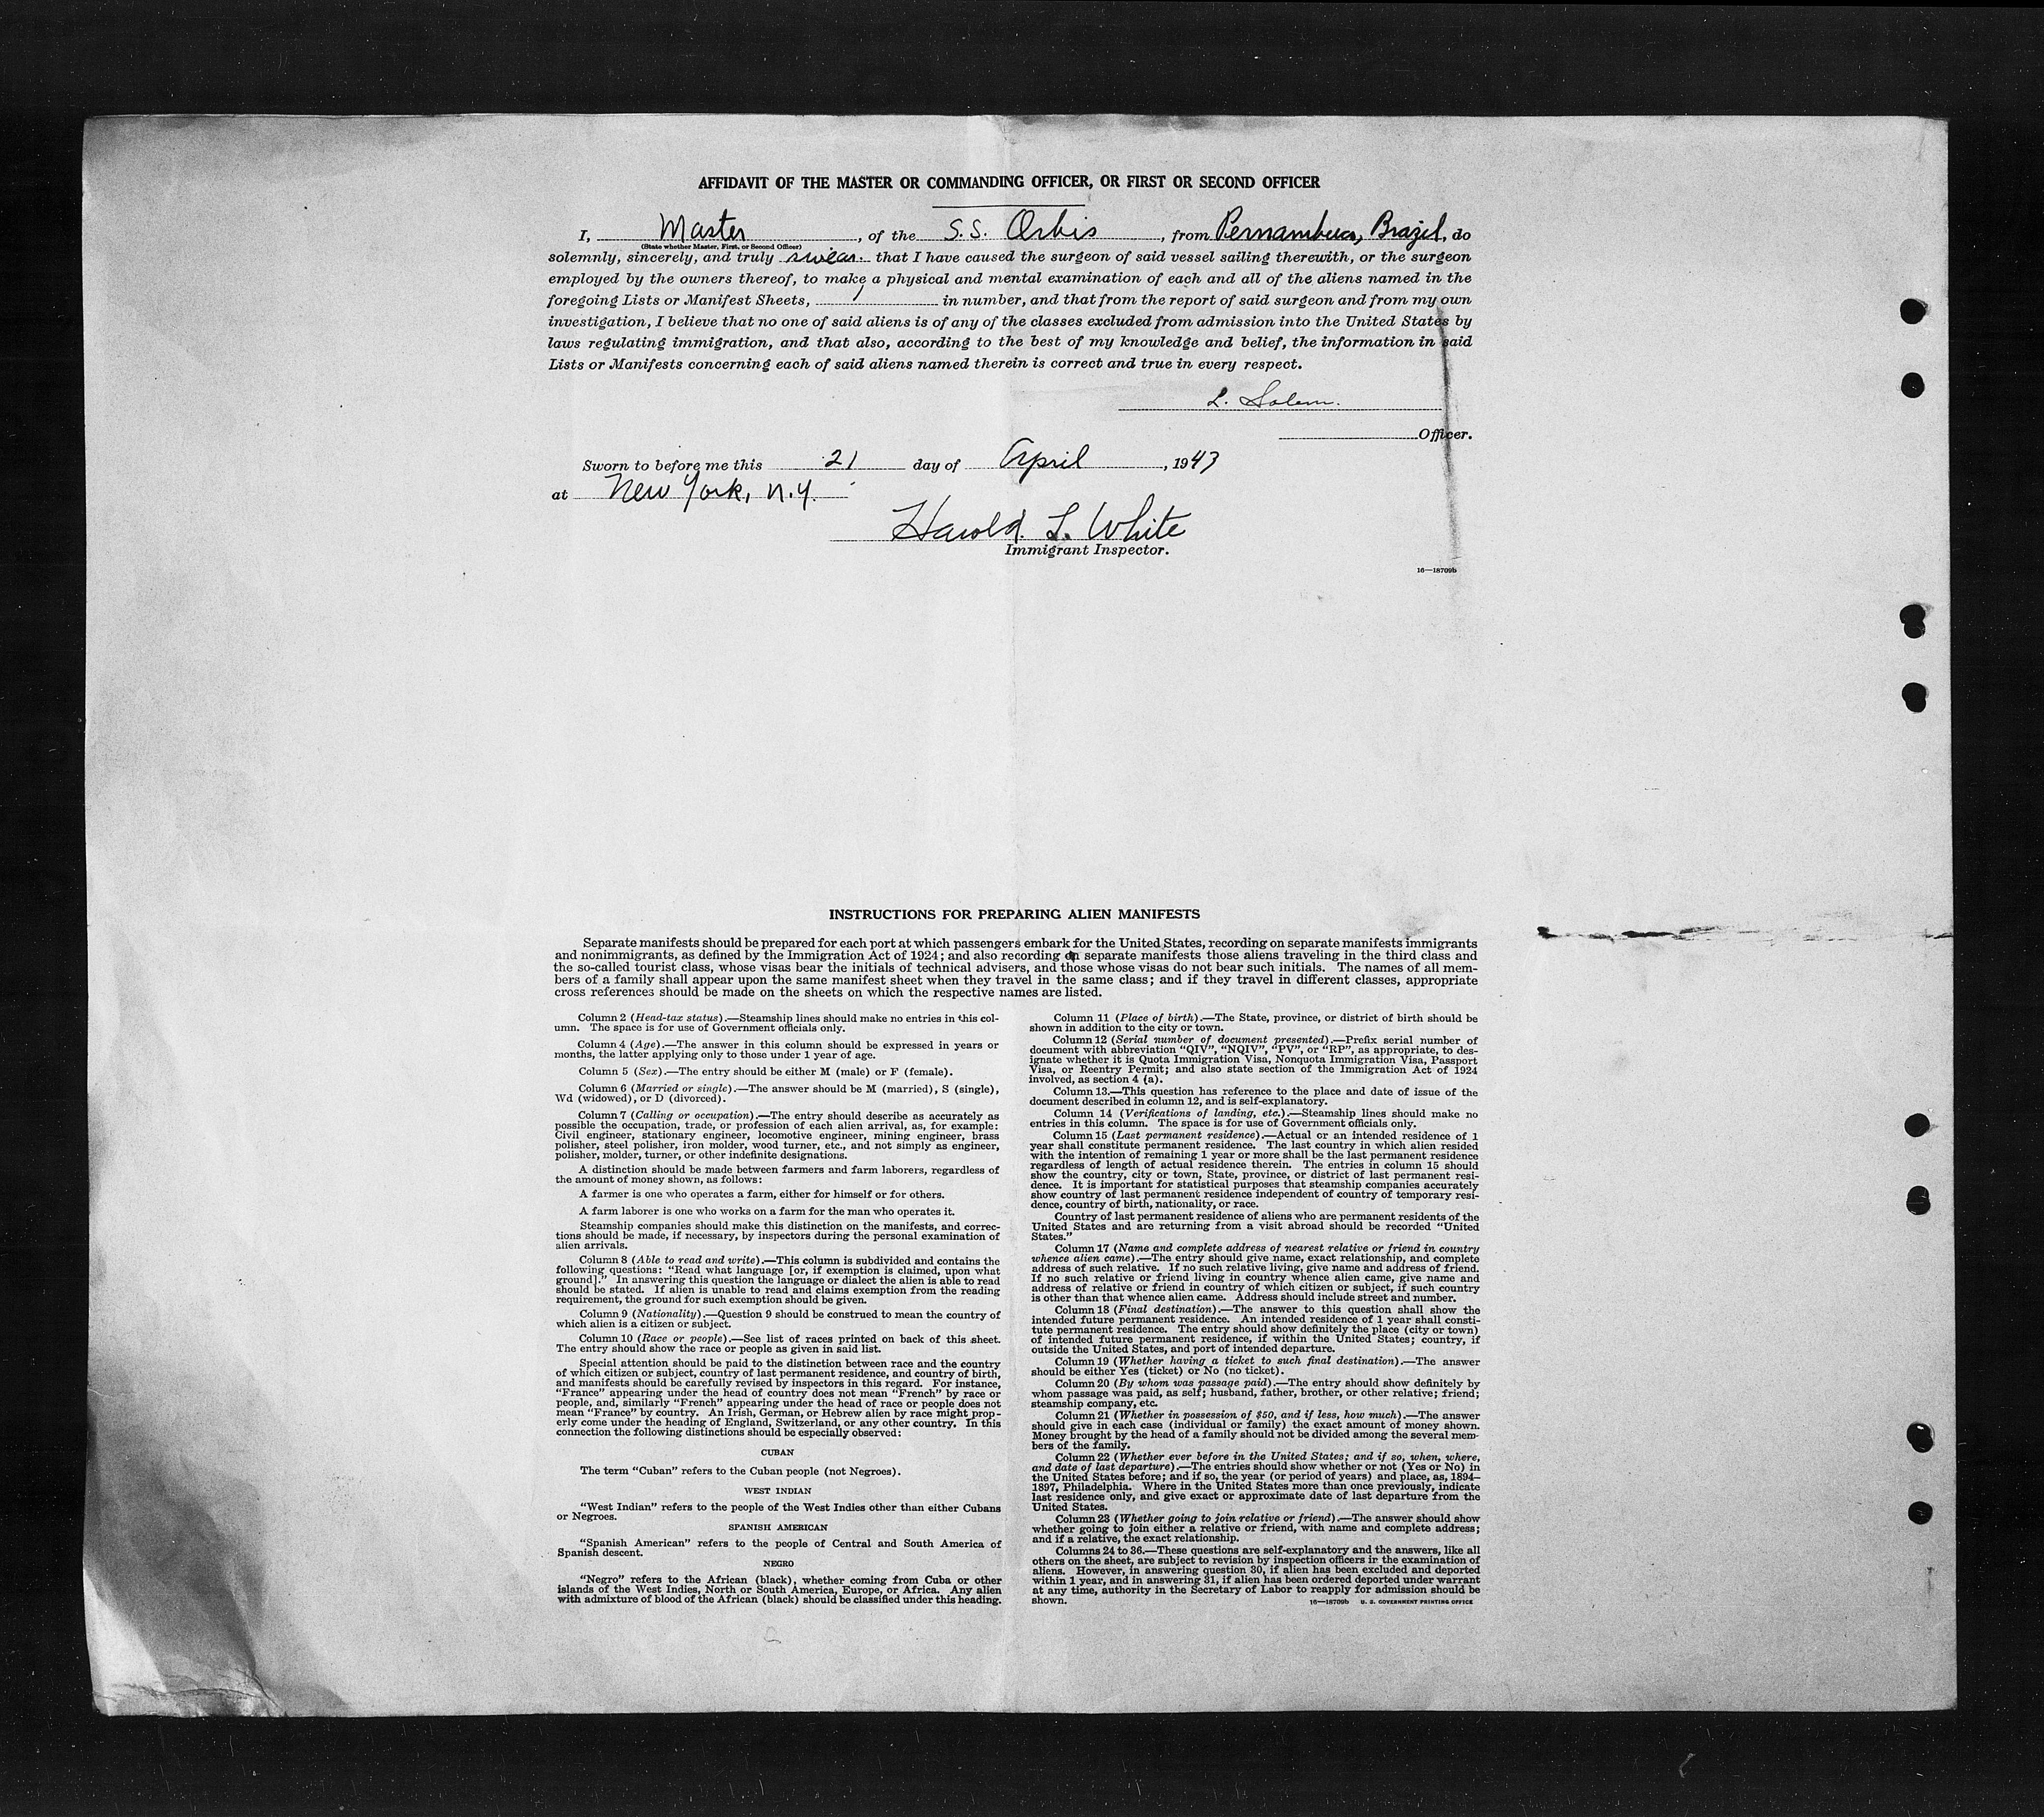 AFFIDAVIT OF THE MASTER OR COMMANDING OFFICER, OR FIRST OR SECOND OFFICER
I, Master, of the S.S. Orbis, from Pernambuco, Brazil, do
(State whether Master, First, or Second Officer)
solemnly, sincerely, and truly swear that I have caused the surgeon of said vessel sailing therewith, or the surgeon
employed by the owners thereof, to make a physical and mental examination of each and all of the aliens named in the
foregoing Lists or Manifest Sheets, 1 in number, and that from the report of said surgeon and from my own
investigation, I believe that no one of said aliens is of any of the classes excluded from admission into the United States by
laws regulating immigration, and that also, according to the best of my knowledge and belief, the information in said
Lists or Manifests concerning each of said aliens named therein is correct and true in every respect.
L. Salem.
Officer.
Sworn to before me this 21 day of April, 1943
at New York, N.Y.
Harold L. White
Immigrant Inspector.
16—18709b
INSTRUCTIONS FOR PREPARING ALIEN MANIFESTS
Separate manifests should be prepared for each port at which passengers embark for the United States, recording on separate manifests immigrants
and nonimmigrants, as defined by the Immigration Act of 1924; and also recording on separate manifests those aliens traveling in the third class and
the so-called tourist class, whose visas bear the initials of technical advisers, and those whose visas do not bear such initials. The names of all mem-
bers of a family shall appear upon the same manifest sheet when they travel in the same class; and if they travel in different classes, appropriate
cross references should be made on the sheets on which the respective names are listed.
Column 2 (Head-tax status).—Steamship lines should make no entries in this col-
umn. The space is for use of Government officials only.
Column 4 (Age).—The answer in this column should be expressed in years or
months, the latter applying only to those under 1 year of age.
Column 5 (Sex).—The entry should be either M (male) or F (female).
Column 6 (Married or single).—The answer should be M (married), S (single),
Wd (widowed), or D (divorced).
Column 7 (Calling or occupation).—The entry should describe as accurately as
possible the occupation, trade, or profession of each alien arrival, as, for example:
Civil engineer, stationary engineer, locomotive engineer, mining engineer, brass
polisher, steel polisher, iron molder, wood turner, etc., and not simply as engineer,
polisher, molder, turner, or other indefinite designations.
A distinction should be made between farmers and farm laborers, regardless of
the amount of money shown, as follows:
A farmer is one who operates a farm, either for himself or for others.
A farm laborer is one who works on a farm for the man who operates it.
Steamship companies should make this distinction on the manifests, and correc-
tions should be made, if necessary, by inspectors during the personal examination of
alien arrivals.
Column 8 (Able to read and write).—This column is subdivided and contains the
following questions: “Read what language [or, if exemption is claimed, upon what
ground].” In answering this question the language or dialect the alien is able to read
should be stated. If alien is unable to read and claims exemption from the reading
requirement, the ground for such exemption should be given.
Column 9 (Nationality).—Question 9 should be construed to mean the country of
which alien is a citizen or subject.
Column 10 (Race or people).—See list of races printed on back of this sheet.
The entry should show the race or people as given in said list.
Special attention should be paid to the distinction between race and the country
of which citizen or subject, country of last permanent residence, and country of birth,
and manifests should be carefully revised by inspectors in this regard. For instance,
“France” appearing under the head of country does not mean “French” by race or
people, and, similarly “French” appearing under the head of race or people does not
mean “France” by country. An Irish, German, or Hebrew alien by race might prop-
erly come under the heading of England, Switzerland, or any other country. In this
connection the following distinctions should be especially observed:
CUBAN
The term “Cuban” refers to the Cuban people (not Negroes).
WEST INDIAN
“West Indian” refers to the people of the West Indies other than either Cubans
or Negroes.
SPANISH AMERICAN
“Spanish American” refers to the people of Central and South America of
Spanish descent.
NEGRO
“Negro” refers to the African (black), whether coming from Cuba or other
islands of the West Indies, North or South America, Europe, or Africa. Any alien
with admixture of blood of the African (black) should be classified under this heading.
Column 11 (Place of birth).—The State, province, or district of birth should be
shown in addition to the city or town.
Column 12 (Serial number of document presented).—Prefix serial number of
document with abbreviation “QIV”, “NQIV”, “PV”, or “RP”, as appropriate, to des-
ignate whether it is Quota Immigration Visa, Nonquota Immigration Visa, Passport
Visa, or Reentry Permit; and also state section of the Immigration Act of 1924
involved, as section 4 (a).
Column 13.—This question has reference to the place and date of issue of the
document described in column 12, and is self-explanatory.
Column 14 (Verifications of landing, etc.).—Steamship lines should make no
entries in this column. The space is for use of Government officials only.
Column 15 (Last permanent residence).—Actual or an intended residence of 1
year shall constitute permanent residence. The last country in which alien resided
with the intention of remaining 1 year or more shall be the last permanent residence
regardless of length of actual residence therein. The entries in column 15 should
show the country, city or town, State, province, or district of last permanent resi-
dence. It is important for statistical purposes that steamship companies accurately
show country of last permanent residence independent of country of temporary resi-
dence, country of birth, nationality, or race.
Country of last permanent residence of aliens who are permanent residents of the
United States and are returning from a visit abroad should be recorded “United
States.”
Column 17 (Name and complete address of nearest relative or friend in country
whence alien came).—The entry should give name, exact relationship, and complete
address of such relative. If no such relative living, give name and address of friend.
If no such relative or friend living in country whence alien came, give name and
address of relative or friend in country of which citizen or subject, if such country
is other than that whence alien came. Address should include street and number.
Column 18 (Final destination).—The answer to this question shall show the
intended future permanent residence. An intended residence of 1 year shall consti-
tute permanent residence. The entry should show definitely the place (city or town)
of intended future permanent residence, if within the United States; country, if
outside the United States, and port of intended departure.
Column 19 (Whether having a ticket to such final destination).—The answer
should be either Yes (ticket) or No (no ticket).
Column 20 (By whom was passage paid).—The entry should show definitely by
whom passage was paid, as self; husband, father, brother, or other relative; friend;
steamship company, etc.
Column 21 (Whether in possession of $50, and if less, how much).—The answer
should give in each case (individual or family) the exact amount of money shown.
Money brought by the head of a family should not be divided among the several mem-
bers of the family.
Column 22 (Whether ever before in the United States; and if so, when, where,
and date of last departure).—The entries should show whether or not (Yes or No) in
the United States before; and if so, the year (or period of years) and place, as, 1894–
1897, Philadelphia. Where in the United States more than once previously, indicate
last residence only, and give exact or approximate date of last departure from the
United States.
Column 23 (Whether going to join relative or friend).—The answer should show
whether going to join either a relative or friend, with name and complete address;
and if a relative, the exact relationship.
Columns 24 to 36.—These questions are self-explanatory and the answers, like all
others on the sheet, are subject to revision by inspection officers in the examination of
aliens. However, in answering question 30, if alien has been excluded and deported
within 1 year, and in answering 31, if alien has been ordered deported under warrant
at any time, authority in the Secretary of Labor to reapply for admission should be
shown.
16—18709b U. S. GOVERNMENT PRINTING OFFICE